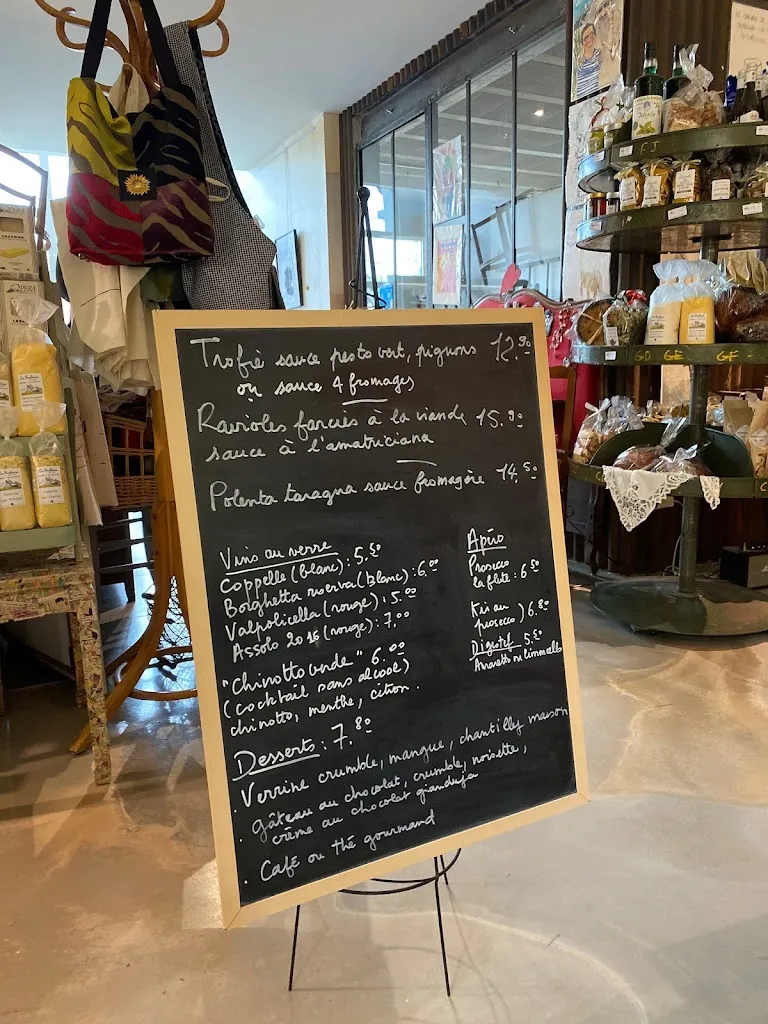 Trofie sauce pesto vert, pignons 12.90
ou sauce 4 fromages
Ravioles farcies à la viande 15.90
sauce à l'amatriciana
Polenta taragna sauce fromagère 14,50
Vins au verre
Coppelle (blanc) : 5.50
Borghetta riserva (blanc) : 6.00
Valpolicella (rouge) : 5.00
Assolo 2016 (rouge) : 7.00
"Chinotto verde" 6.00
(cocktail sans alcool)
chinotto, menthe, citron.
Apéro
Prosecco
la flûte : 6.50
Kir au
prosecco ) 6.80
Digestif 5.50
Amaretto ou limoncello
Desserts : 7.80
. Verrine crumble, mangue, chantilly maison
. Gâteau au chocolat, crumble, noisette,
crème au chocolat gianduja
. Café ou thé gourmand
GD GE GF